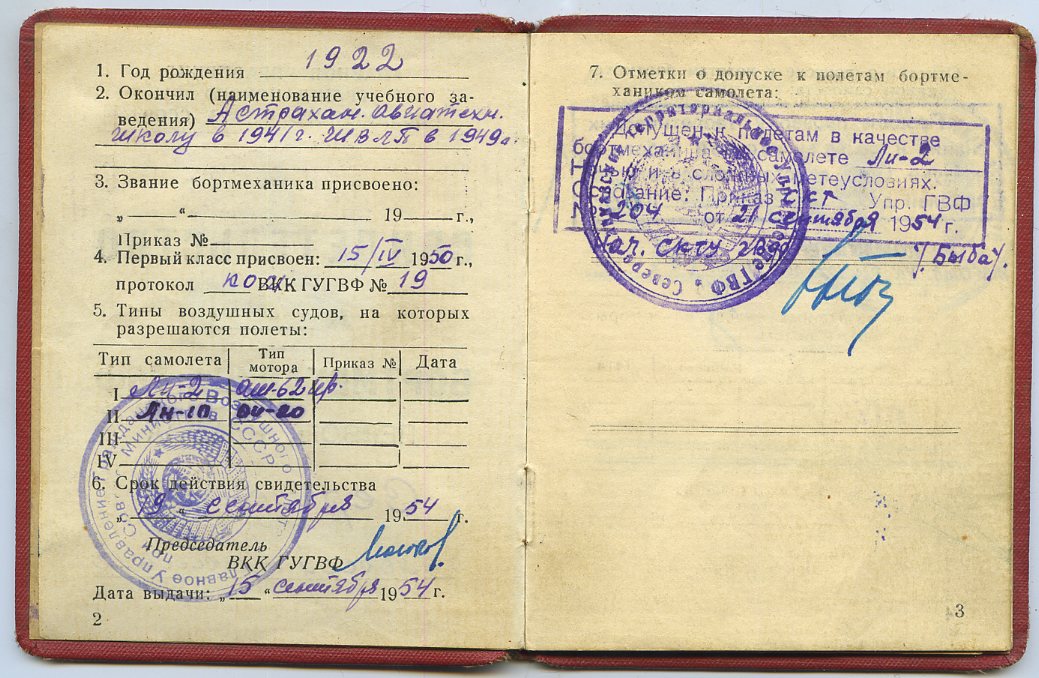 1. Год рождения 1922
2. Окончил (наименование учебного за-
ведения) Астрахан. авиатехн.
школу в 1941г. ШВЛП в 1949г.
3. Звание бортмеханика присвоено:
„ — “ — 19 — г.,
Приказ № —
4. Первый класс присвоен: 15/IV 1950 г.,
протокол ВКК ГУГВФ № 19
5. Типы воздушных судов, на которых
разрешаются полеты:
Тип самолета Тип мотора Приказ № Дата
I Ли-2 аш-62ир.
II
III
IV
6. Срок действия свидетельства
„ 9 “ сентября 1954 г.
Председатель
ВКК ГУГВФ
Дата выдачи: „ 15 “ сентября 1954 г.
2
7. Отметки о допуске к полетам бортме-
хаником самолета:
Допущен к полетам в качестве
бортмеханика на самолете Ли-2
сложных метеусловиях.
Приказ СКТ Упр. ГВФ
204 от 21 сентября 1954 г.
Нач. СКТУ ГВФ
/Быба/.
3